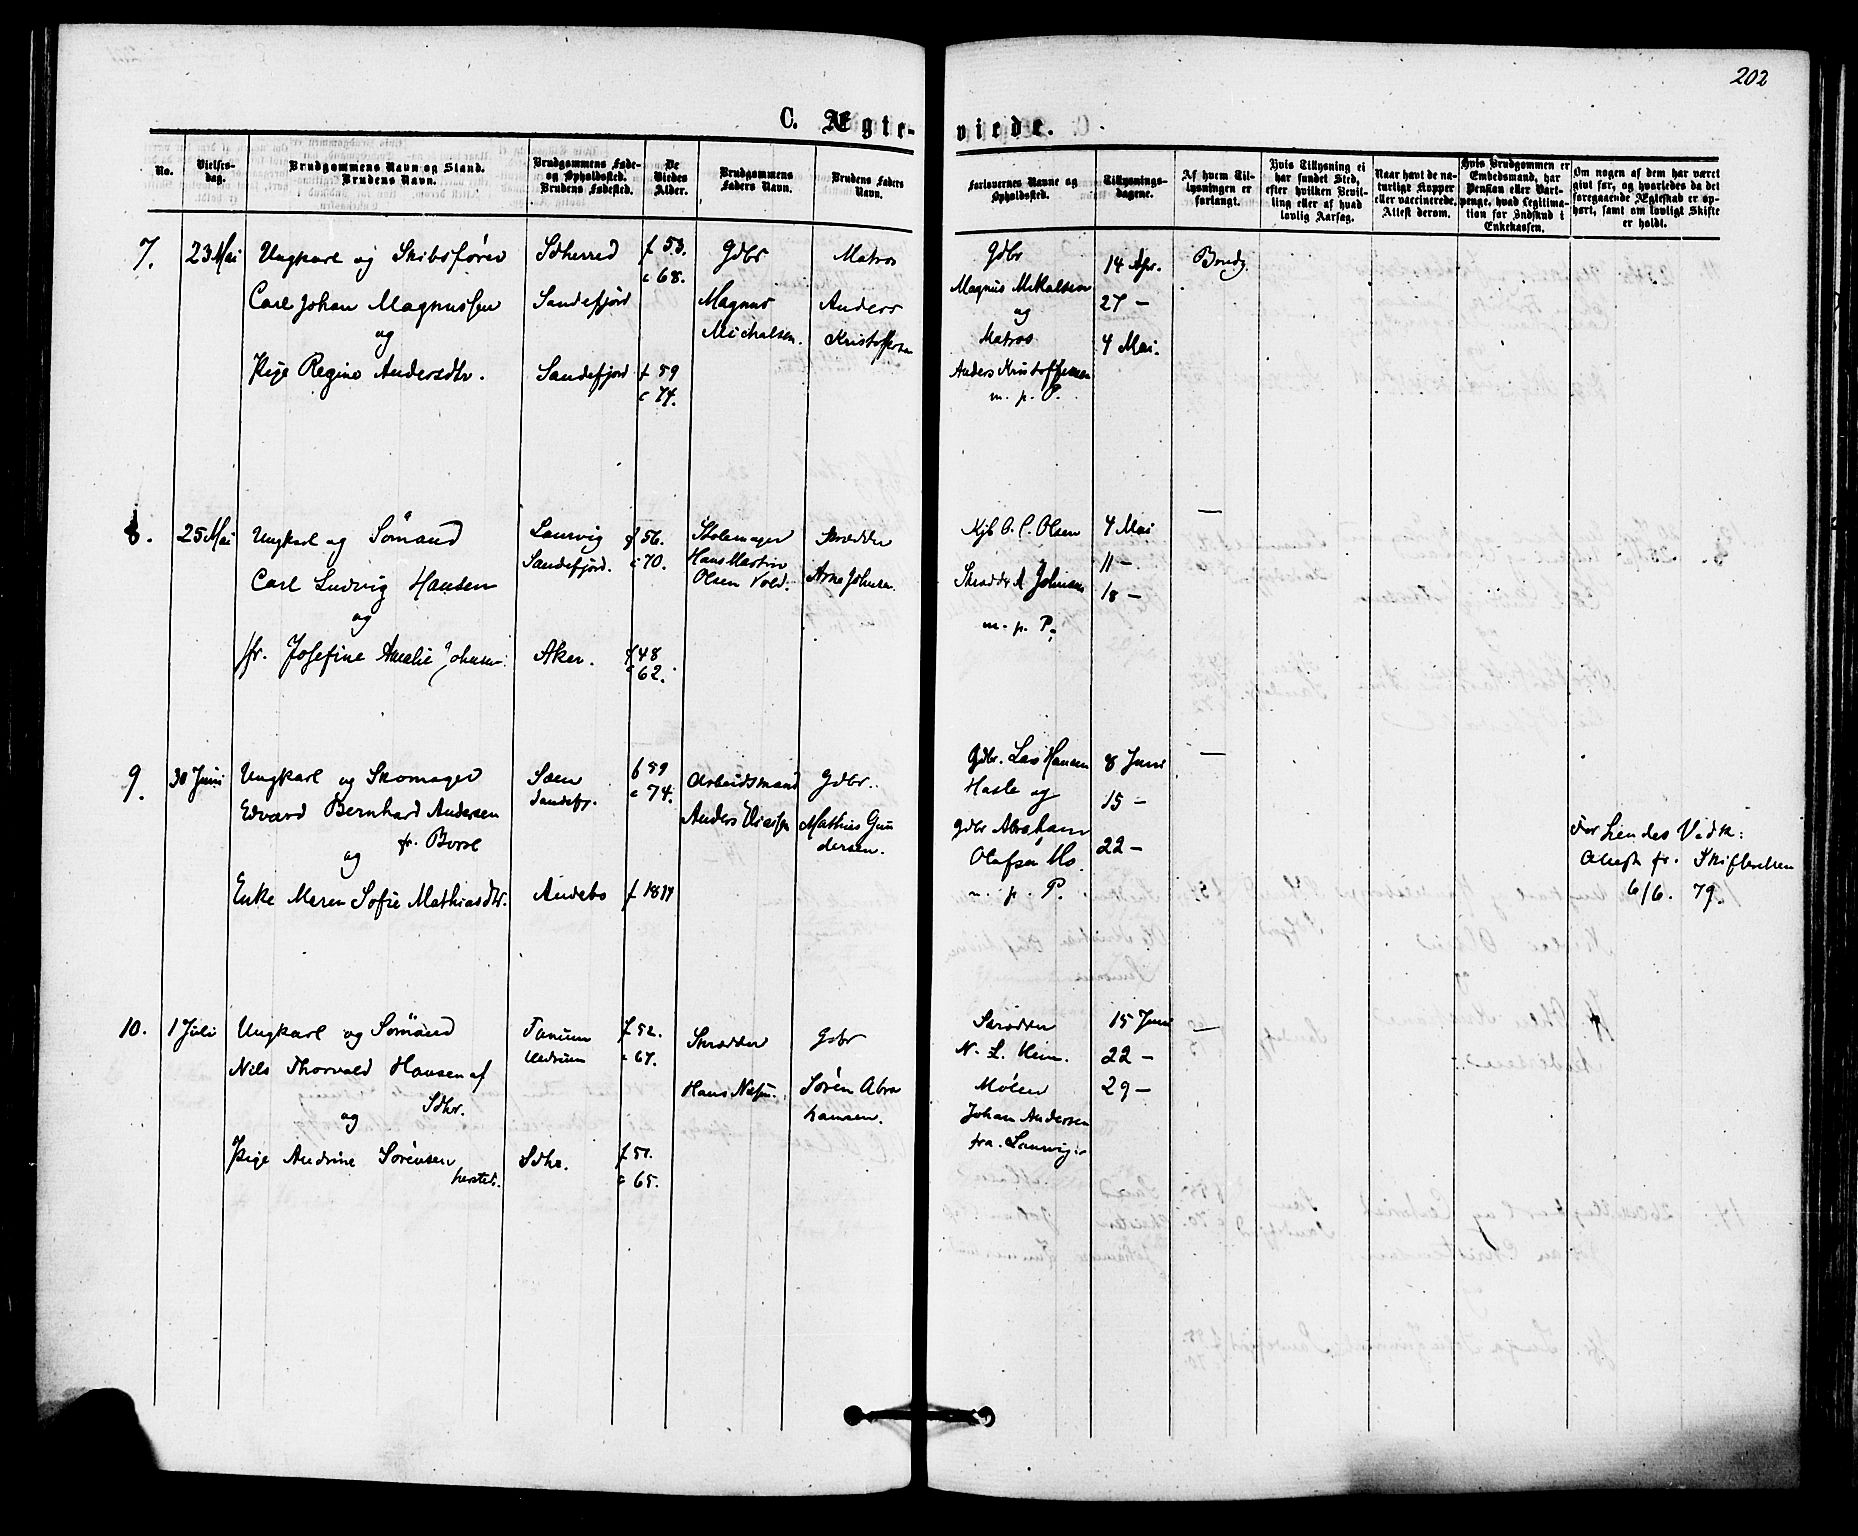 202
C. Ægte-
viede.
No.
Vielses-
dag.
Brudgommens Navn og Stand.
Brudens Navn.
Brudgommens Føde-
og Opholdssted.
Brudens Fødested.
De
Viedes
Alder.
Brudgommens
Faders Navn.
Brudens Faders
Navn.
Forlovernes Navne og
Opholdssted.
Tillysnings-
dagene.
Af hvem Til-
lysningen er
forlangt.
Hvis Tillysning ei
har fundet Sted,
efter hvilken Bevil-
ling eller af hvad
lovlig Aarsag.
Naar havt de na-
turlige Kopper
eller vaccinerede,
Attest derom.
Hvis Brudgommen er
Embedsmand, har
Pension eller Vart-
penge, hvad Legitima-
tion for Indskud i
Enkekassen.
Om nogen af dem har været
givt før, og hvorledes da det
foregaaende Ægteskab er op-
hørt, samt om lovligt Skifte
er holdt.
7.
23 Mai
Ungkarl og Skibsfører
Carl Johan Magnussen
og
Pige Regine Andersdtr.
Sdherred
Sandefjord
Sandefjord
f 53.
c 68.
f 59
c 74.
Gdbr
Magnus
Michalsen.
Matros
Anders
Kristoffersen
Gdbr
Magnus Mikalsen
og
Matros
Anders Kristoffersen
m. p. P.
14 Apr.
27 —
4 Mai.
Brudg.
8.
25 Mai
Ungkarl og Sømand
Carl Ludvig Hansen
og
fr. Josefine Amalie Johnsen
Laurvig
Sandefjord.
Aker.
f 56.
c 70.
f 48
c 62.
Stolemager
Hans Martin
Olsen Vold.
Skrædder
Arne Johnsen
Kjb O. C. Olsen
Skrædder A Johnsen
m. p. P.
4 Mai
11 —
18 —
—
9.
30 Juni
Ungkarl og Skomager
Edvard Bernhard Andersen
fr.
og
Enke Maren Sofie Mathiasdtr.
Sæm
Sandefj.
Andebo
f 59
c 74.
f 18
Arbeidsmand
Anders
Gdbr.
Mathias Gun
dersen.
Gdbr. Lars Hansen
Hasle og
gdbr Abraham
Olafsen Mo
m. p. P.
8 Juni
15 —
22 —
—
For hendes Vedk:
Attest fr. Skifteretten
6/6. 79.
10.
1 Juli
Ungkarl og Sømand
Nils Thorvald Hansen af
Sdhr.
og
Pige Andrine Sørensen
Tanum
Hedrum
Sdhr.
f 52.
c 67.
f 51.
c 65.
Skrædder
Hans
Gdbr
Søren Abra
hamsen.
Skrædder
N. L. Heim.
Møller
Johan Andersen
fra Laurvig
15 Juni
22 —
29 —
—